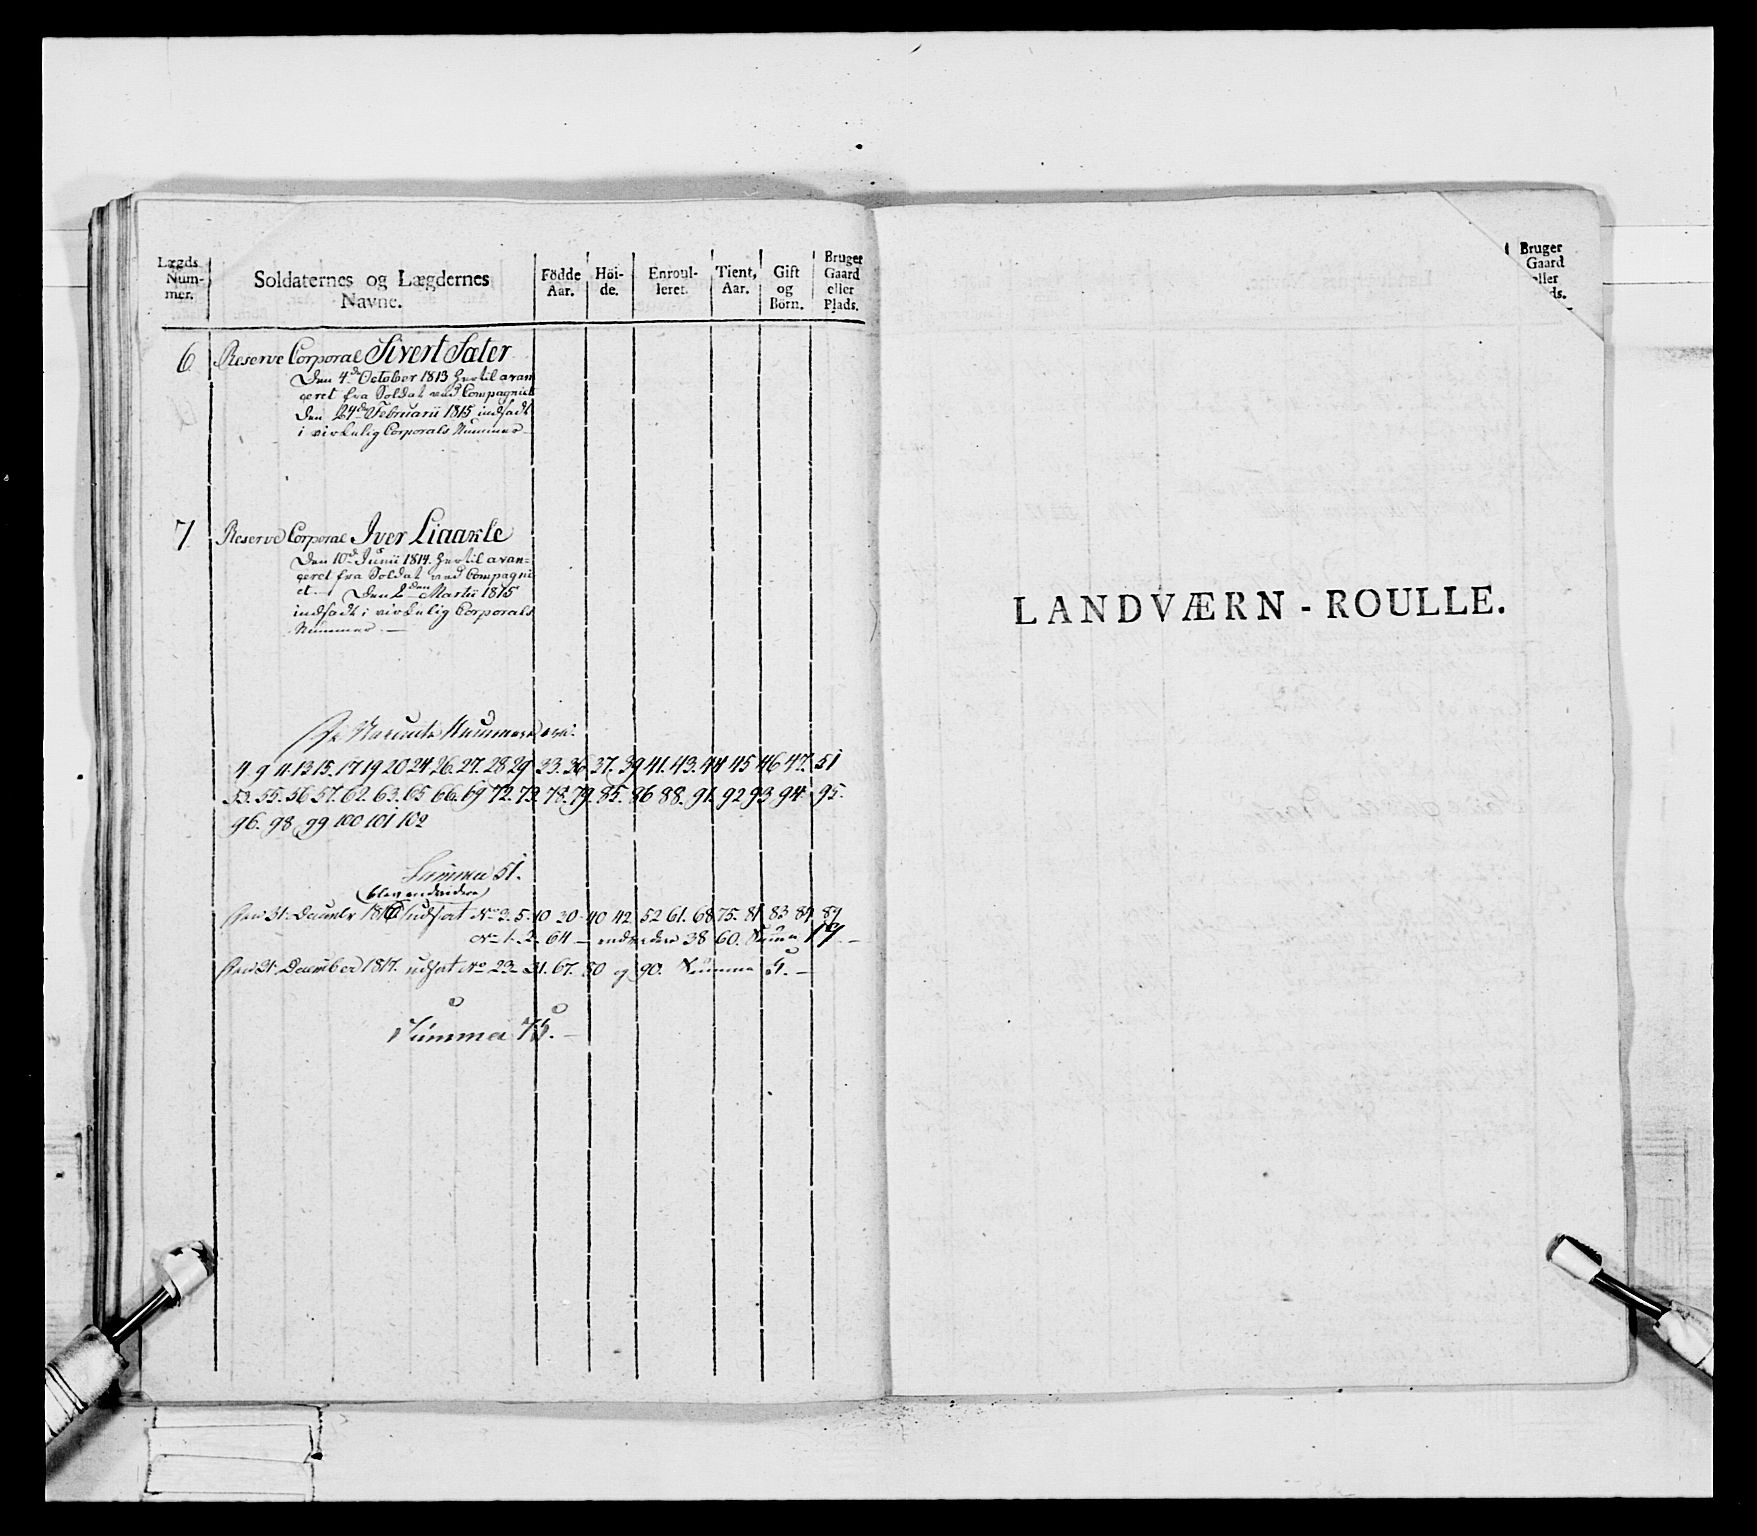 Lægds Num- mer.
Soldaternes og Lægdernes Navne.
Födde Aar.
Höi- de.
Enroul- leret.
Tient, Aar.
Gift og Börn.
Bruger Gaard eller Plads.
6 Reserve Corporal Sivert Sæter
Den 4d October 1813 hertil avan
ceret fra Soldat ved Compagniet
Den 24d Februarii 1815 indsadt
i virkelig Corporals Nummer
7 Reserve Corporal Iver Liaakle
Den 10d Junii 1814 hertil avan=
ceret fra Soldat ved Compagni
et. Den 2den Martii 1815
indsadt i virkelig Corporals
Nummer
Nummere
4. 9 11. 13 15. 17 19 20 24 26. 27. 28 29 33. 36 37. 39 41. 43. 44 45 46 47. 51
53. 55. 56 57. 62. 63. 65 66. 69 72. 73. 78. 79. 85. 86 88. 91. 92 93 94. 95.
96. 98 99 100 101 102
Summa 51.
blev endvidere
31. December udsat No 3. 5. 10 30 40 42. 52 61. 68 75. 81 83 84 89
No 1. 2. 64 endvidere 38 60. Summa 19
31. December 1817. udsat No 23 31. 67. 80 og 90. Summa 5.
Summa 75.
LANDVÆRN - ROULLE.
Bruger
Gaard
eller
ds.